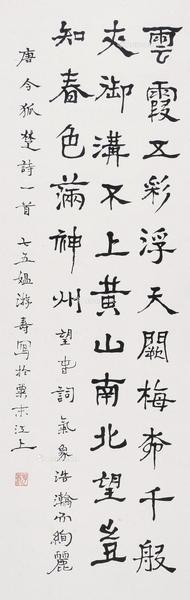 雲霞五彩浮天闕梅柳千般
夾御溝不上黃山南北望豈
知春色滿神州 望旾詞氣象浩瀚而絢麗
唐令狐楚詩一首 七五媼游壽寫於粟末江上